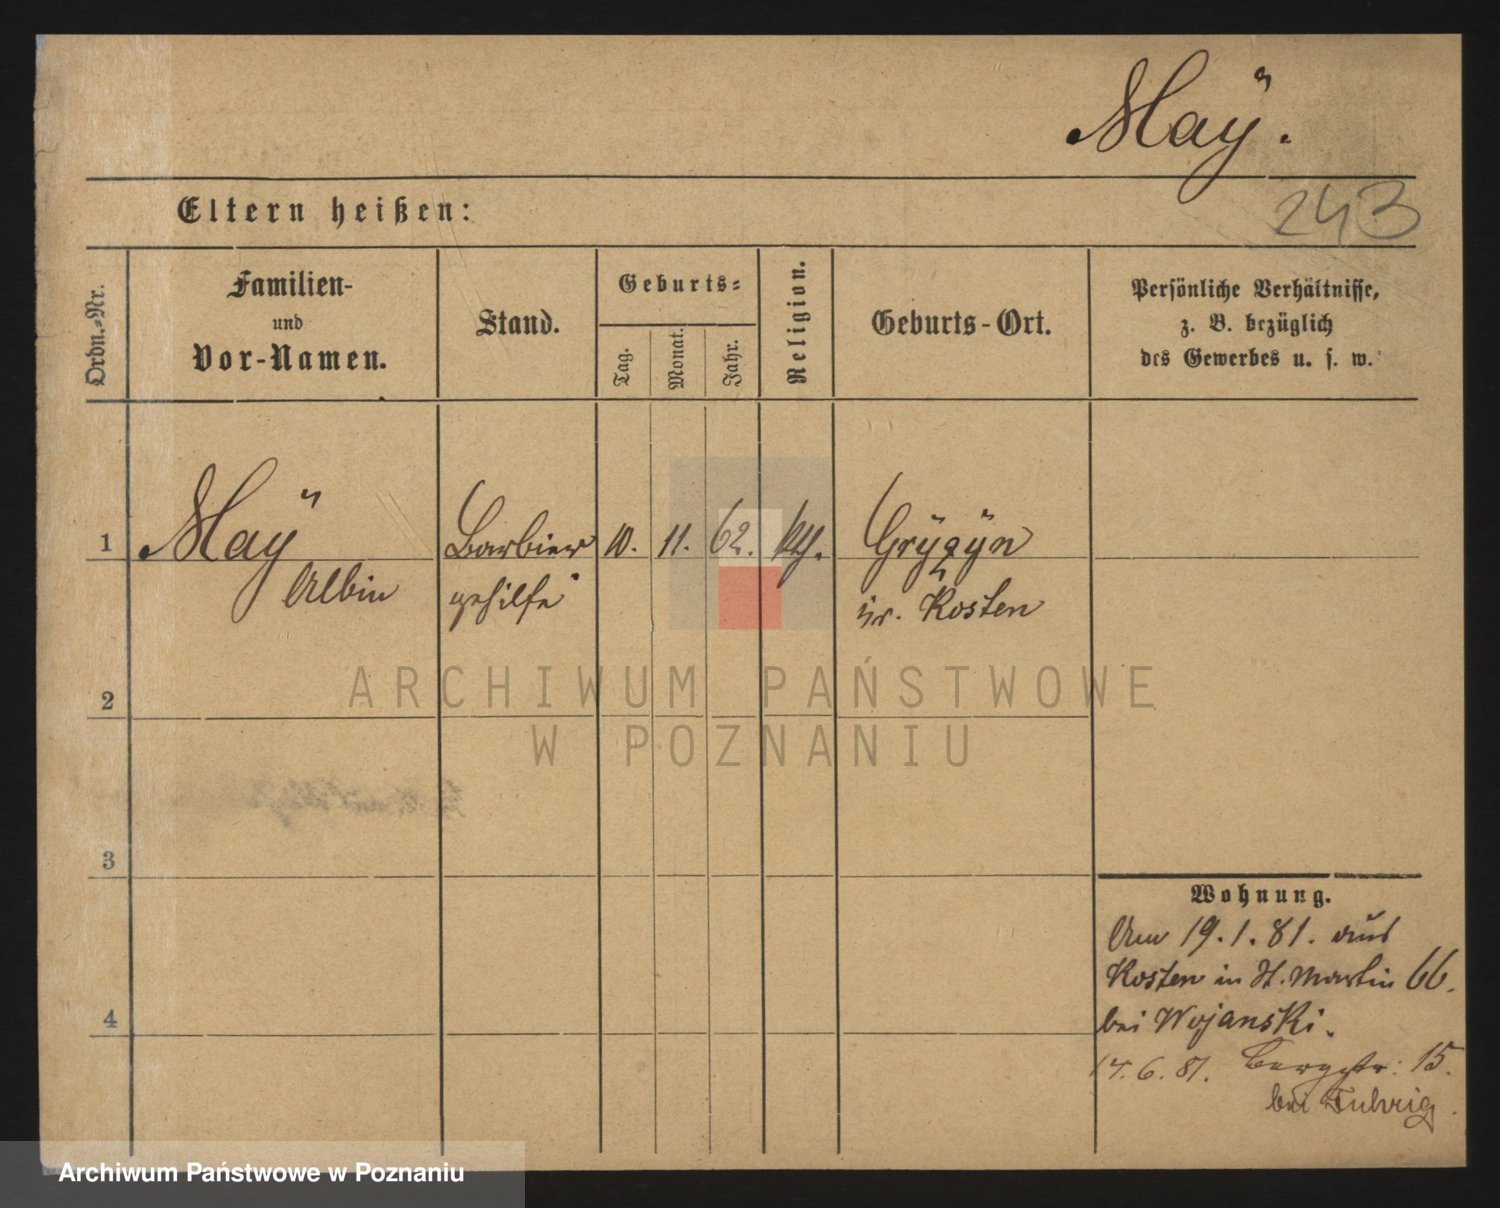 Maÿ.
243
Eltern heißen:
Ordn.-Nr.
Familien-
und
Vor-Namen.
Stand.
Geburts-
Tag.
Monat.
Jahr.
Religion.
Geburts-Ort.
Persönliche Verhältnisse,
z. B. bezüglich
des Gewerbes u. s. w.
1
Maÿ
Albin
Barbier
gehilfe
10.
11.
62.
kth.
Grÿzÿn
Kosten
2
3
4
Wohnung.
Am 19.1.81. aus
Kosten in St. Martin 66.
bei Wojanski.
14.6.81. Bergstr: 15.
bei
ARCHIWUM PAŃSTWOWE
W POZNANIU
Archiwum Państwowe w Poznaniu